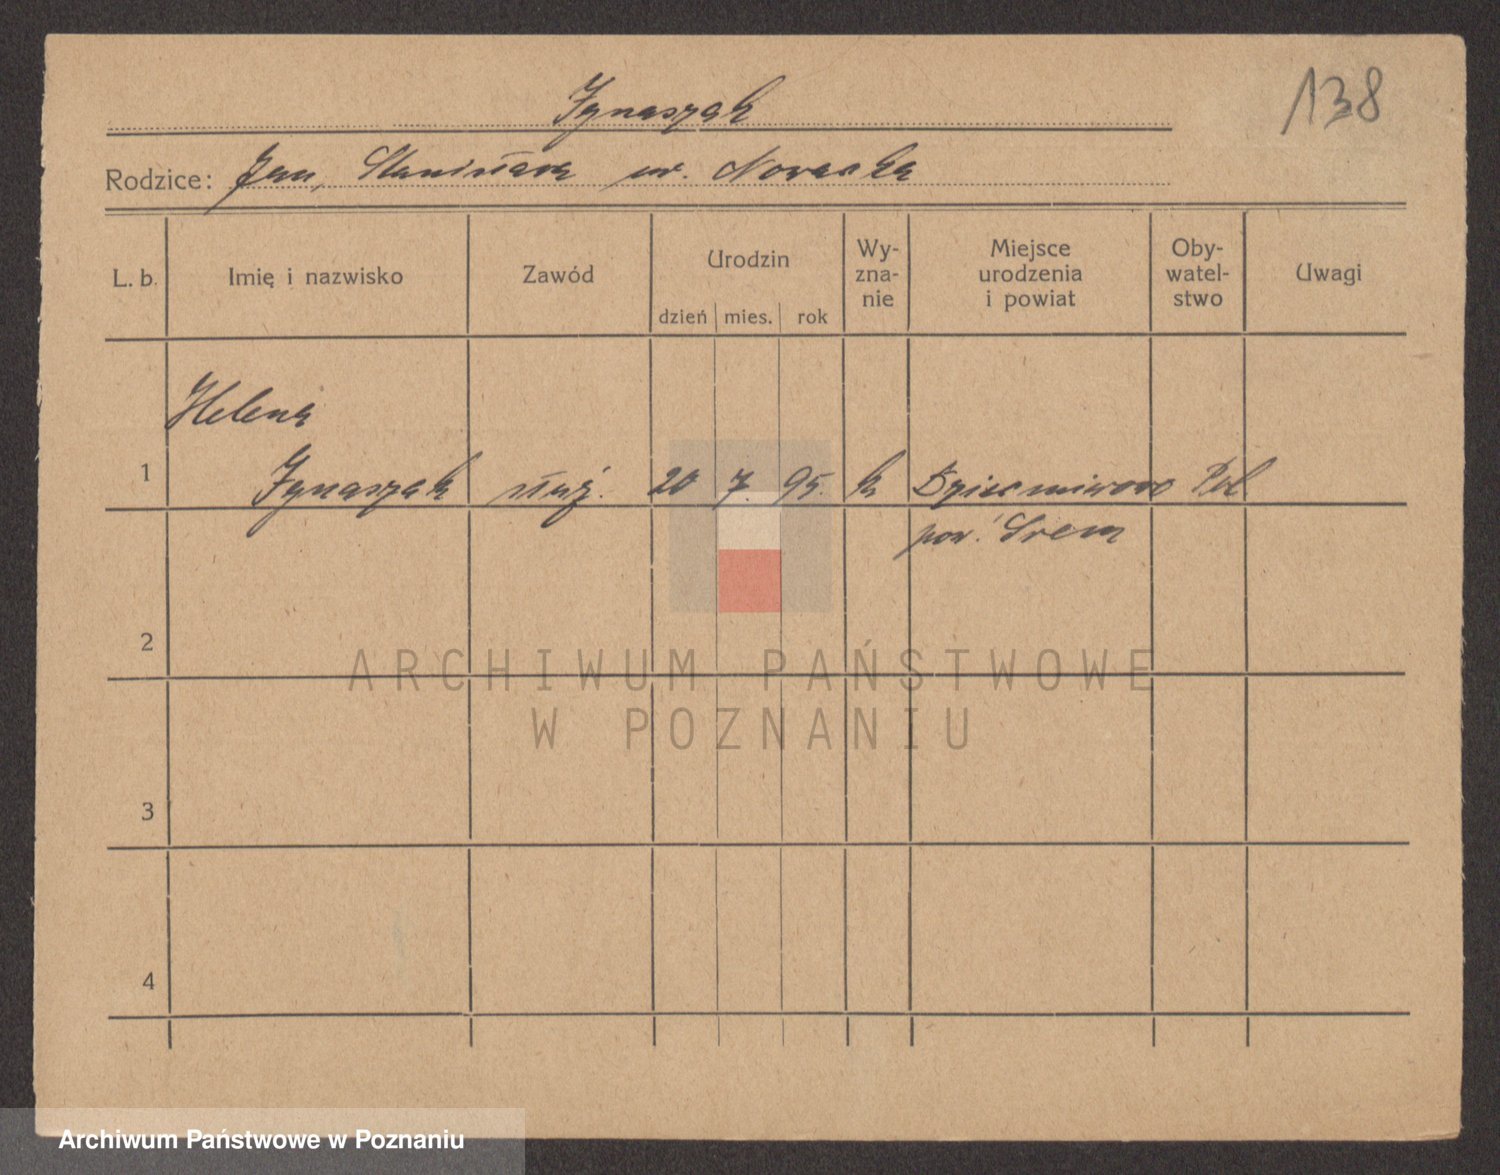 138
Ignaszak
Rodzice: Jan, Stanisława ur. Nowacka
L. b. Imię i nazwisko Zawód Urodzin dzień mies. rok Wy-zna-nie Miejsce urodzenia i powiat Oby-watel-stwo Uwagi
Helena
1 Ignaszak służ. 20 7. 95. k Dziećmierowo Pol
pow. Śrem
2
ARCHIWUM PAŃSTWOWE
W POZNANIU
3
4
Archiwum Państwowe w Poznaniu